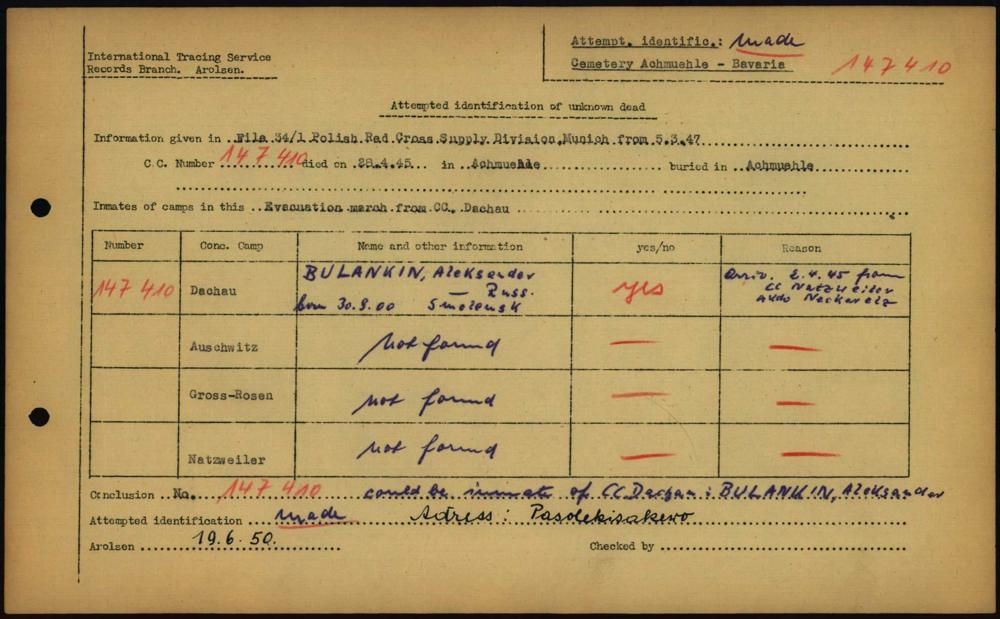 International Tracing Service
Records Branch. Arolsen.
Attempt. identific.: made
Cemetery Achmuehle - Bavaria 147410
Attempted identification of unknown dead
Information given in File 34/1 Polish Red Cross Supply Division, Munich from 5.3.47
C.C. Number 147410 died on 28.4.45 in Achmuehle buried in Achmuehle
Inmates of camps in this Evacuation march from CC. Dachau
Number Conc. Camp Name and other information yes/no Reason
147 410 Dachau BULANKIN, Aleksander yes arriv. 2.4.45 from
— Russ. CC Natzweiler
born 30.9.00 Smolensk Kdo Neckarelz
Auschwitz not found — —
Gross-Rosen not found — —
Natzweiler not found — —
Conclusion No. 147 410 could be inmate of CC Dachau: BULANKIN, Aleksander
Attempted identification made Adress: Pasolekisakewo
Arolsen 19.6.50. Checked by